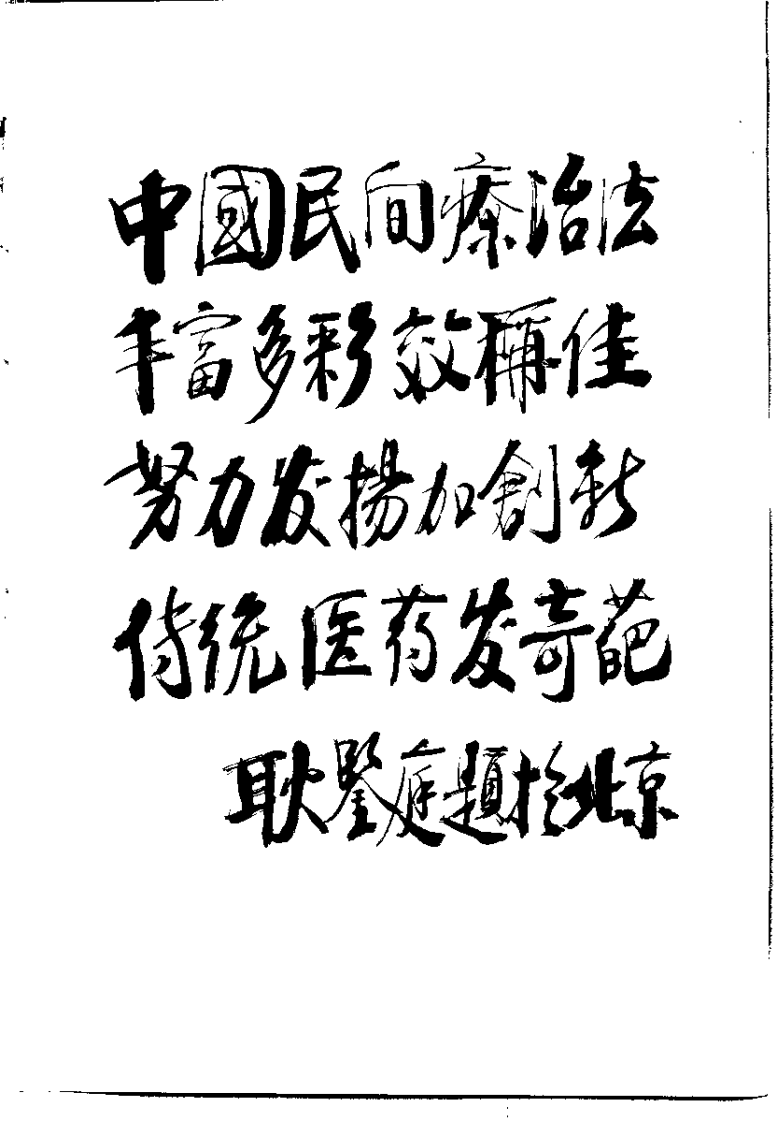 中國民间療治法
丰富多彩效稱佳
努力发揚加創新
传統医药发奇葩
耿鑒庭題於北京